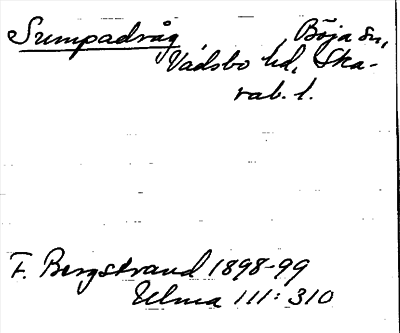 Sumpadråg Böja sn,
Vadsbo hd, Ska-
rab. l.
F. Bergstrand 1898-99
Ulma 111: 310